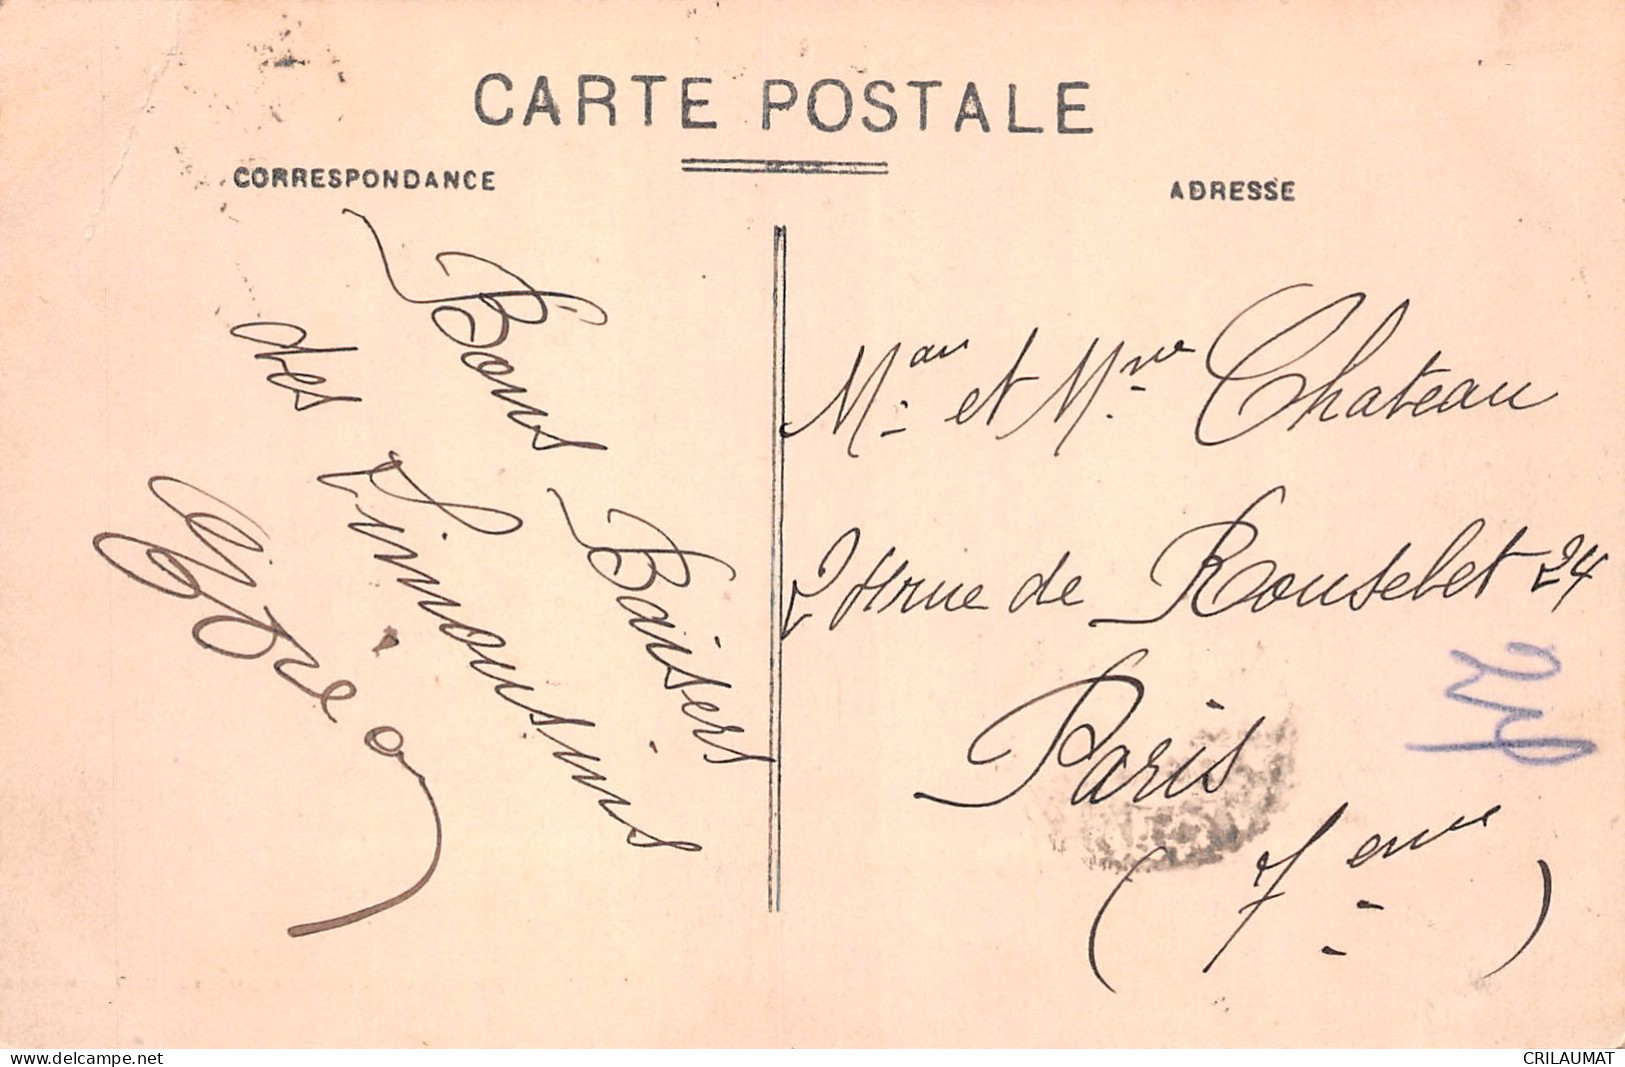 CARTE POSTALE
CORRESPONDANCE
ADRESSE
Bons Baisers
des Limousins
Mr et Mme Chateau
rue de Rouselet 24
Paris
(7eme)
24
www.delcampe.net
CRILAUMAT